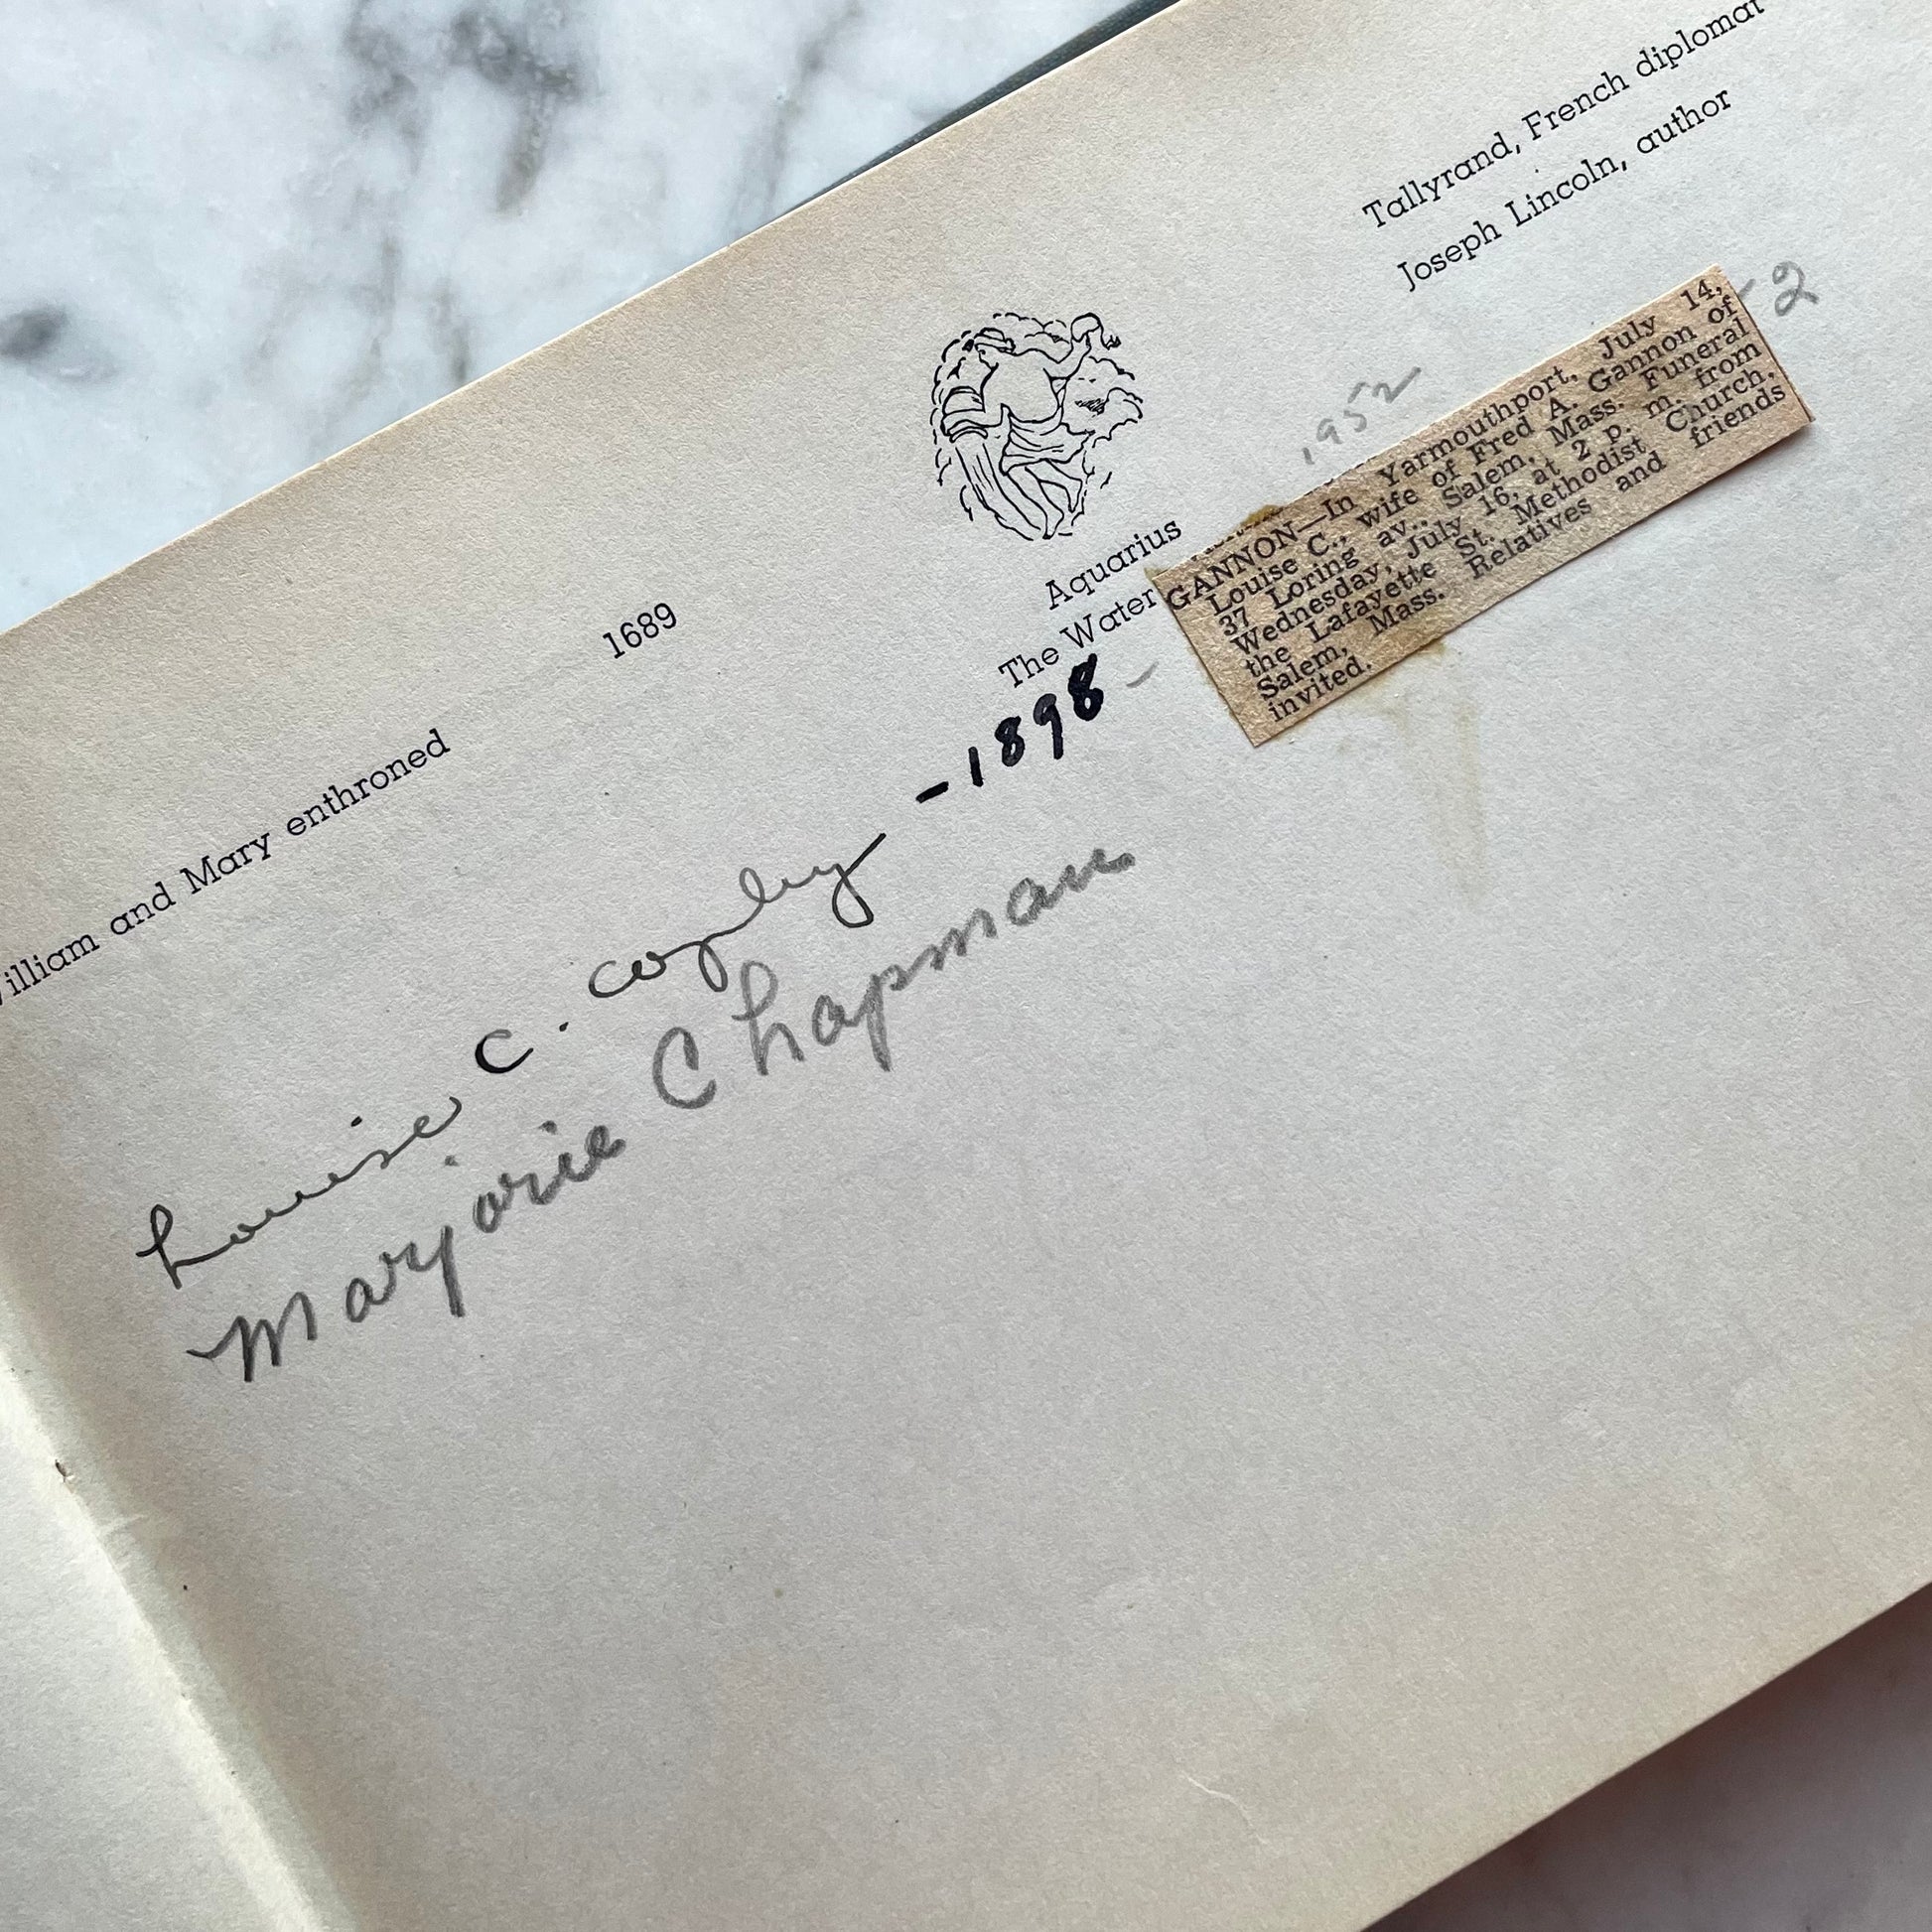 Tallyrand, French diplomat
Joseph Lincoln, author
William and Mary enthroned
1689
Aquarius
The Water
1952
2
GANNON—In Yarmouthport, July 14,
Louise C., wife of Fred A. Gannon of
37 Loring av., Salem, Mass. Funeral
Wednesday, July 16, at 2 p. m. from
the Lafayette St. Methodist Church,
Salem, Mass. Relatives and friends
invited.
Louise C. Copley -1898-
Marjorie Chapman